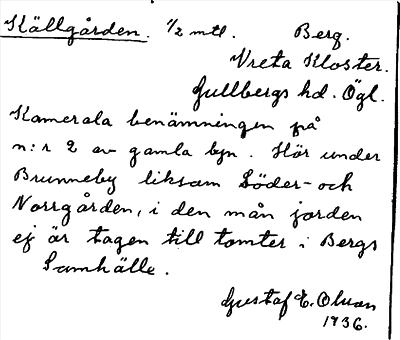 Källgården. 1/2 mtl. Berg.
Vreta Kloster.
Gullbergs hd. Ögl.
Kamerala benämningen på
n:r 2 av gamla byn. Hör under
Brunneby liksom Söder- och
Norrgården, i den mån jorden
ej är tagen till tomter i Bergs
Samhälle.
Gustaf E. Olsson
1936.